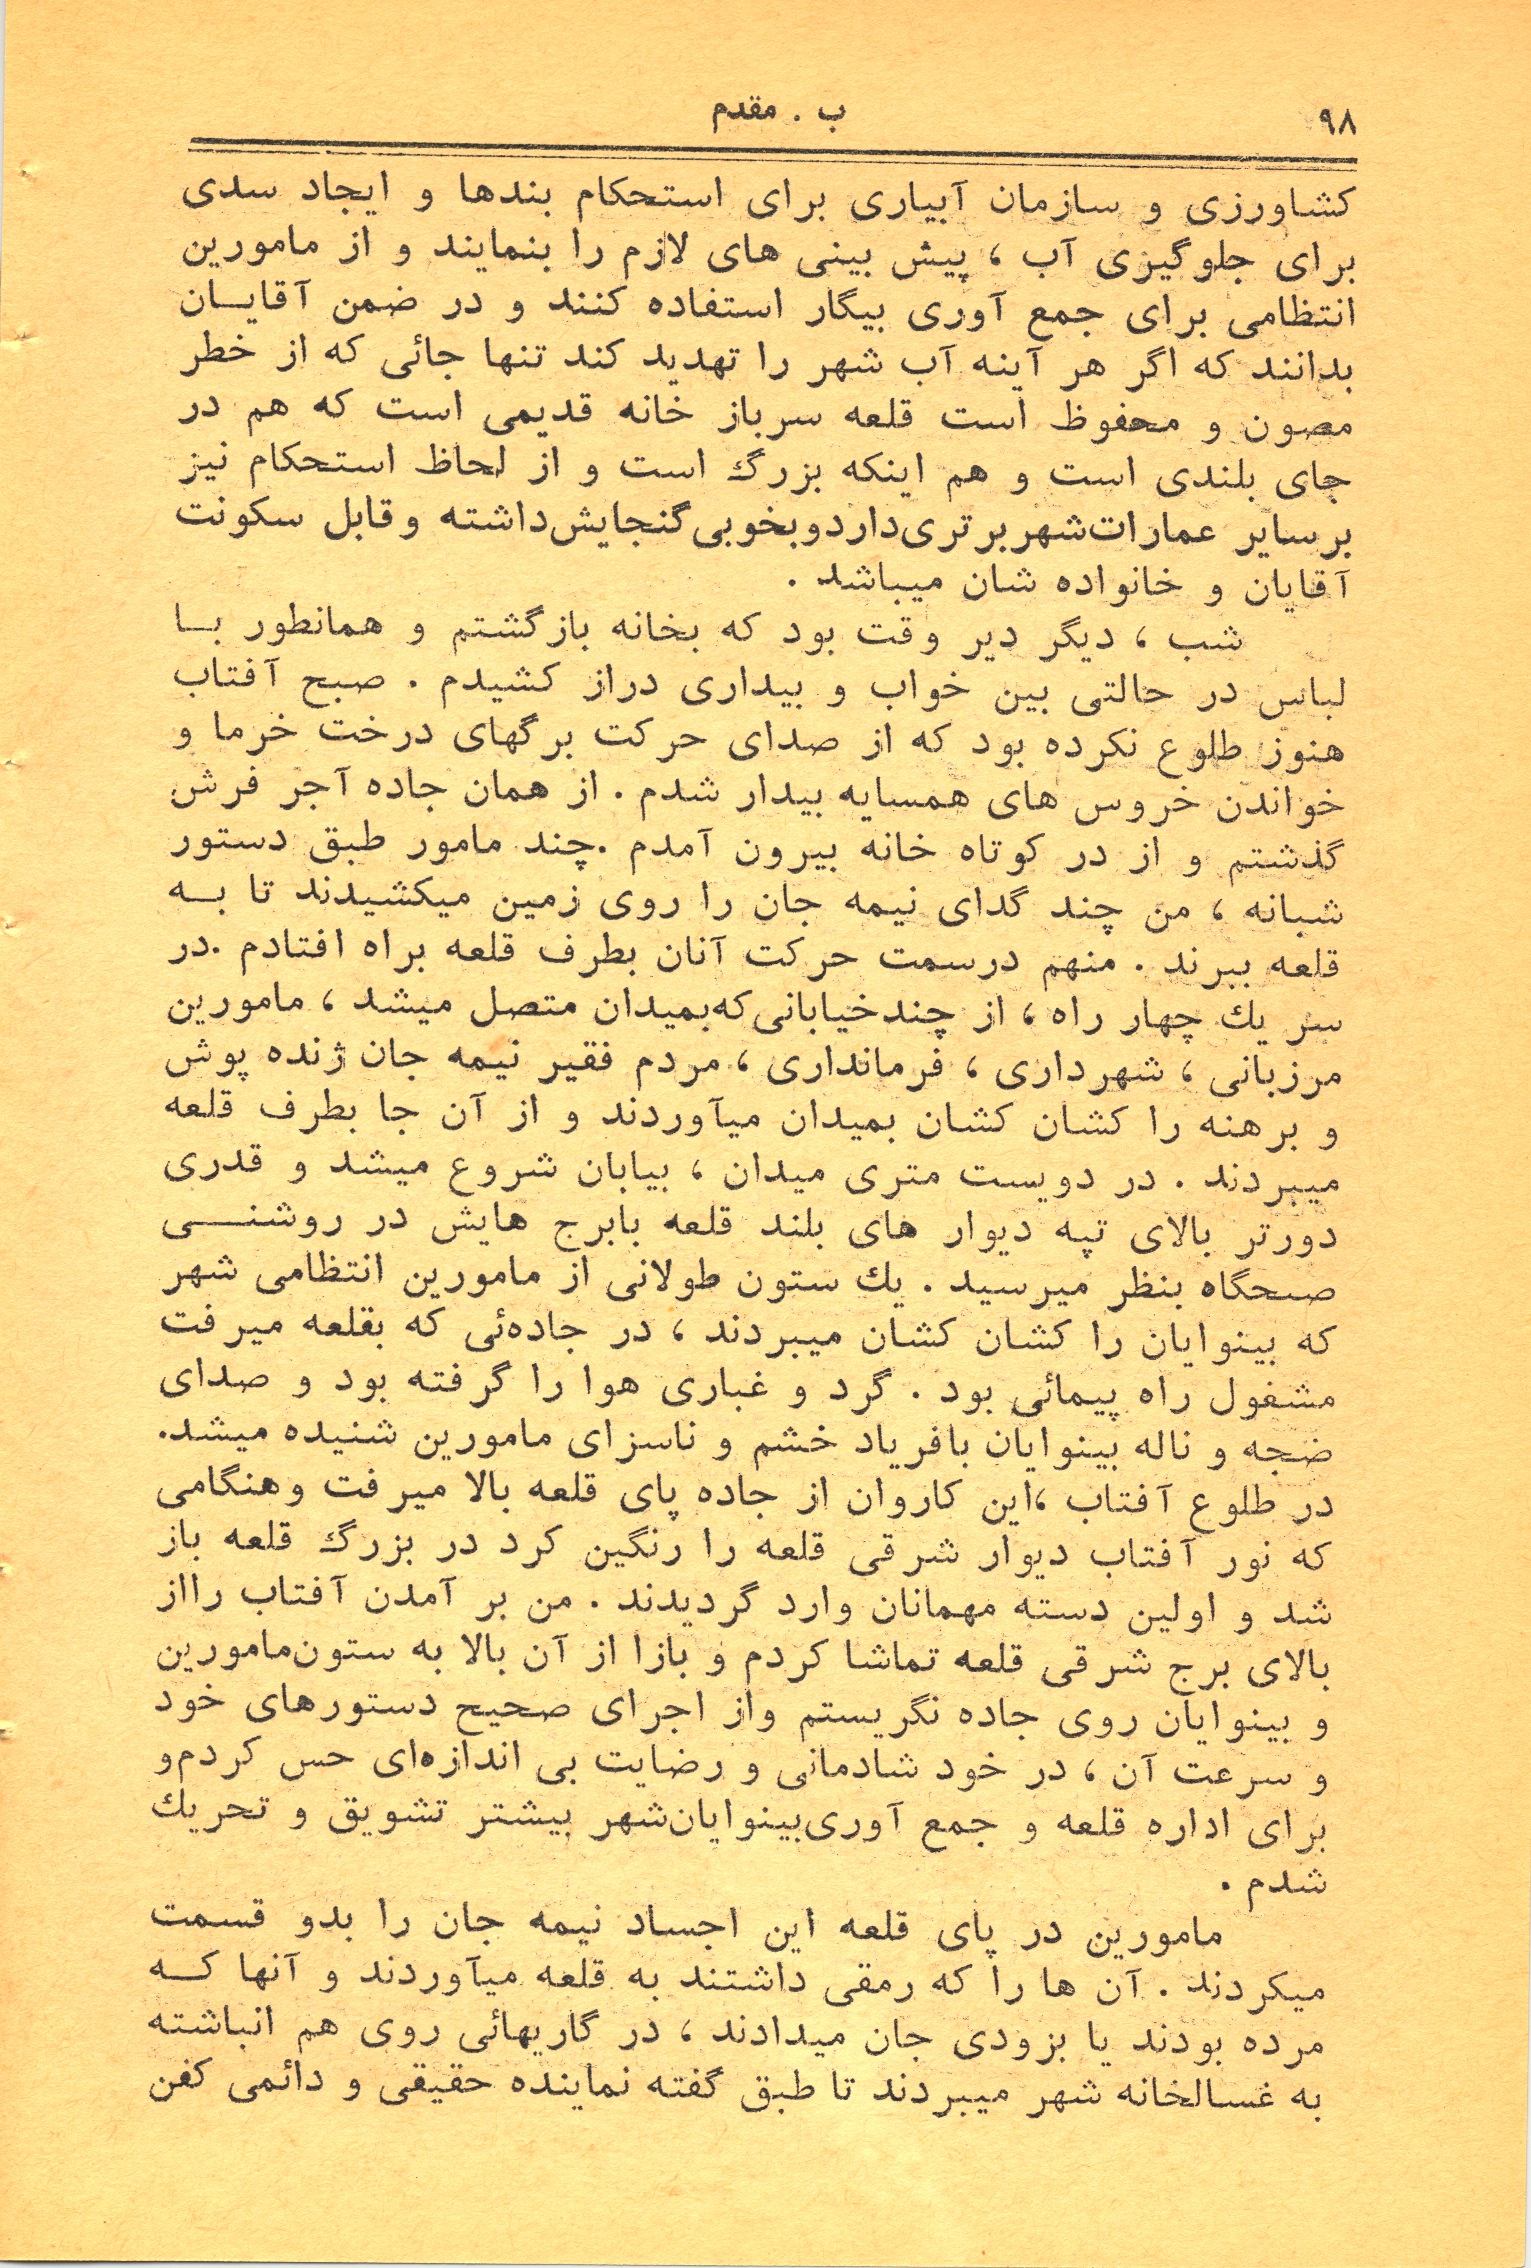 ۹۸
ب . مقدم
کشاورزی و سازمان آبیاری برای استحکام بندها و ایجاد سدی
برای جلوگیری آب ، پیش بینی های لازم را بنمایند و از مامورین
انتظامی برای جمع آوری بیگار استفاده کنند و در ضمن آقایـان
بدانند که اگر هر آینه آب شهر را تهدید کند تنها جائی که از خطر
مصون و محفوظ است قلعه سرباز خانه قدیمی است که هم در
جای بلندی است و هم اینکه بزرگ است و از لحاظ استحکام نیز
برسایر عمارات‌شهربرتری‌داردوبخوبی‌گنجایش‌داشته وقابل سکونت
آقایان و خانواده شان میباشد .
شب ، دیگر دیر وقت بود که بخانه بازگشتم و همانطور بـا
لباس در حالتی بین خواب و بیداری دراز کشیدم . صبح آفتاب
هنوز طلوع نکرده بود که از صدای حرکت برگهای درخت خرما و
خواندن خروس های همسایه بیدار شدم . از همان جاده آجر فرش
گذشتم و از در کوتاه خانه بیرون آمدم .چند مامور طبق دستور
شبانه ، من چند گدای نیمه جان را روی زمین میکشیدند تا بـه
قلعه ببرند . منهم درسمت حرکت آنان بطرف قلعه براه افتادم .در
سر یك چهار راه ، از چندخیابانی‌که‌بمیدان متصل میشد ، مامورین
مرزبانی ، شهرداری ، فرمانداری ، مردم فقیر نیمه جان ژنده پوش
و برهنه را کشان کشان بمیدان میآوردند و از آن جا بطرف قلعه
میبردند . در دویست متری میدان ، بیابان شروع میشد و قدری
دورتر بالای تپه دیوار های بلند قلعه بابرج هایش در روشنـــی
صبحگاه بنظر میرسید . یك ستون طولانی از مامورین انتظامی شهر
که بینوایان را کشان کشان میبردند ، در جاده‌ئی که بقلعه میرفت
مشغول راه پیمائی بود . گرد و غباری هوا را گرفته بود و صدای
ضجه و ناله بینوایان بافریاد خشم و ناسزای مامورین شنیده میشد.
در طلوع آفتاب ،این کاروان از جاده پای قلعه بالا میرفت وهنگامی
که نور آفتاب دیوار شرقی قلعه را رنگین کرد در بزرگ قلعه باز
شد و اولین دسته مهمانان وارد گردیدند . من بر آمدن آفتاب رااز
بالای برج شرقی قلعه تماشا کردم و بازا از آن بالا به ستون‌مامورین
و بینوایان روی جاده نگریستم واز اجرای صحیح دستورهای خود
و سرعت آن ، در خود شادمانی و رضایت بی اندازه‌ای حس کردم‌و
برای اداره قلعه و جمع آوری‌بینوایان‌شهر بیشتر تشویق و تحریك
شدم .
مامورین در پای قلعه این اجساد نیمه جان را بدو قسمت
میکردند . آن ها را که رمقی داشتند به قلعه میآوردند و آنها کـه
مرده بودند یا بزودی جان میدادند ، در گاریهائی روی هم انباشته
به غسالخانه شهر میبردند تا طبق گفته نماینده حقیقی و دائمی کفن